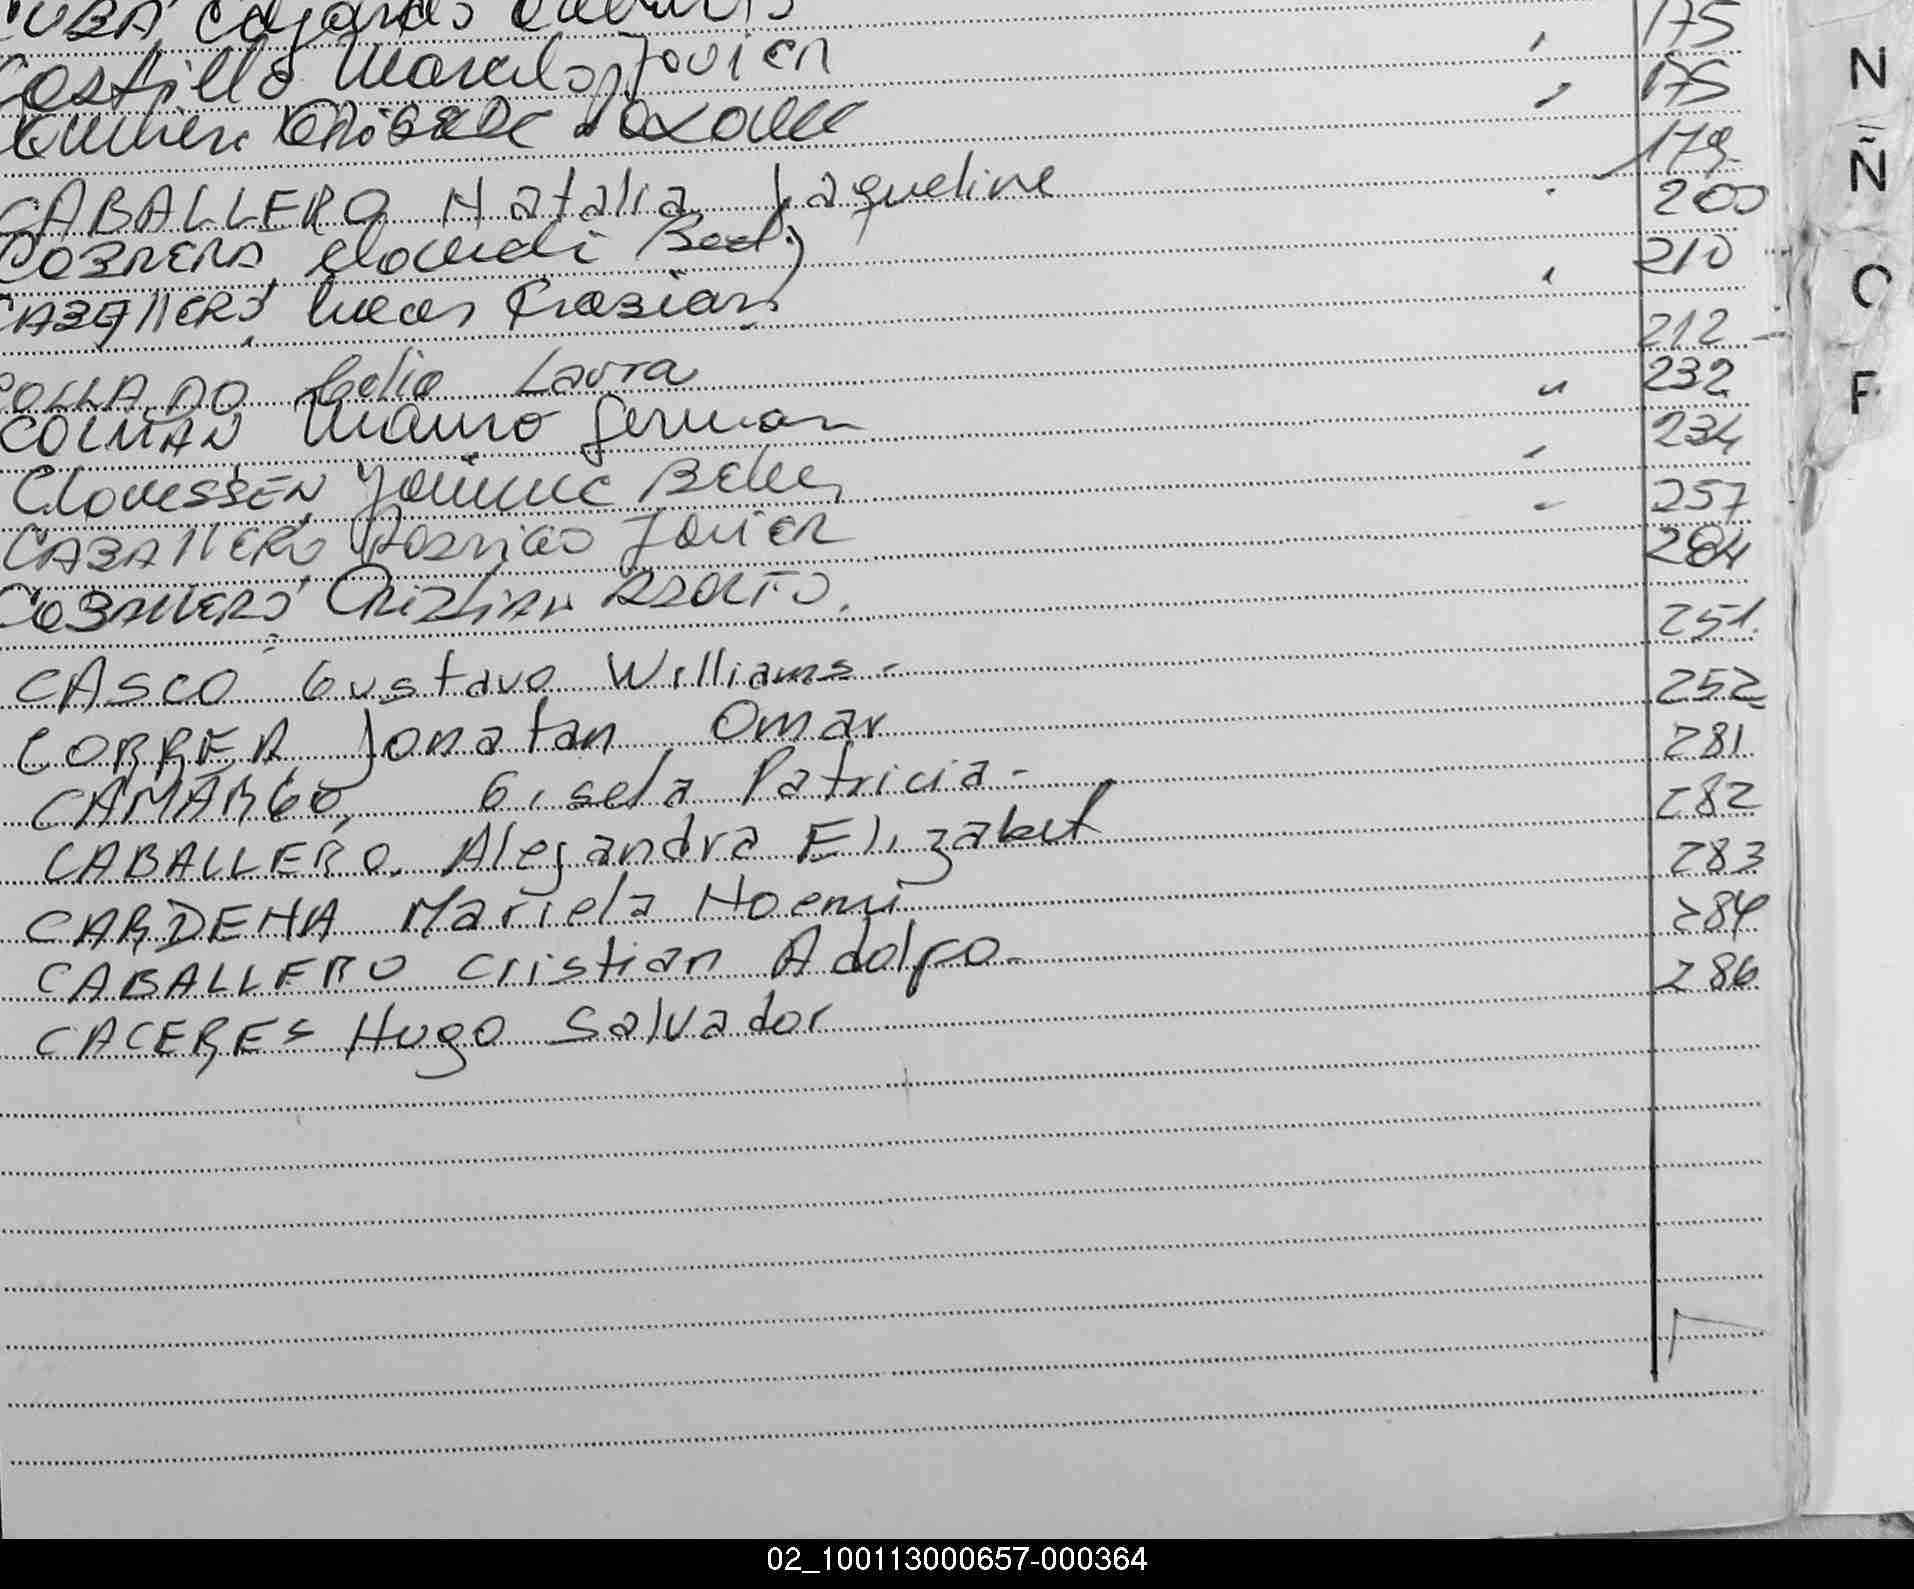 CUBA Edgardo
Castillo Marcelo Javier 175
175
CABALLERO Natalia Jaqueline 179
COBRERA Claudi 200
CABAllERO Lucas Fabian 210
COLLADO Celia Laura 212
COLMAN Mauro German 232
ClaussEN Yanine Belen 234
CABAllERO Rodrigo Javier 257
CABAllERO Cristian ADOLFO. 284
CASCO Gustavo Williams - 251.
CORREA Jonatan Omar 252
CAMARGO, Gisela Patricia - 281
CABALLERO, Alejandra Elizabet 282
CARDENA Mariela Noemi 283
CABALLERO Cristian Adolfo - 284
CACERES Hugo Salvador 286
N
Ñ
O
P
02_100113000657-000364